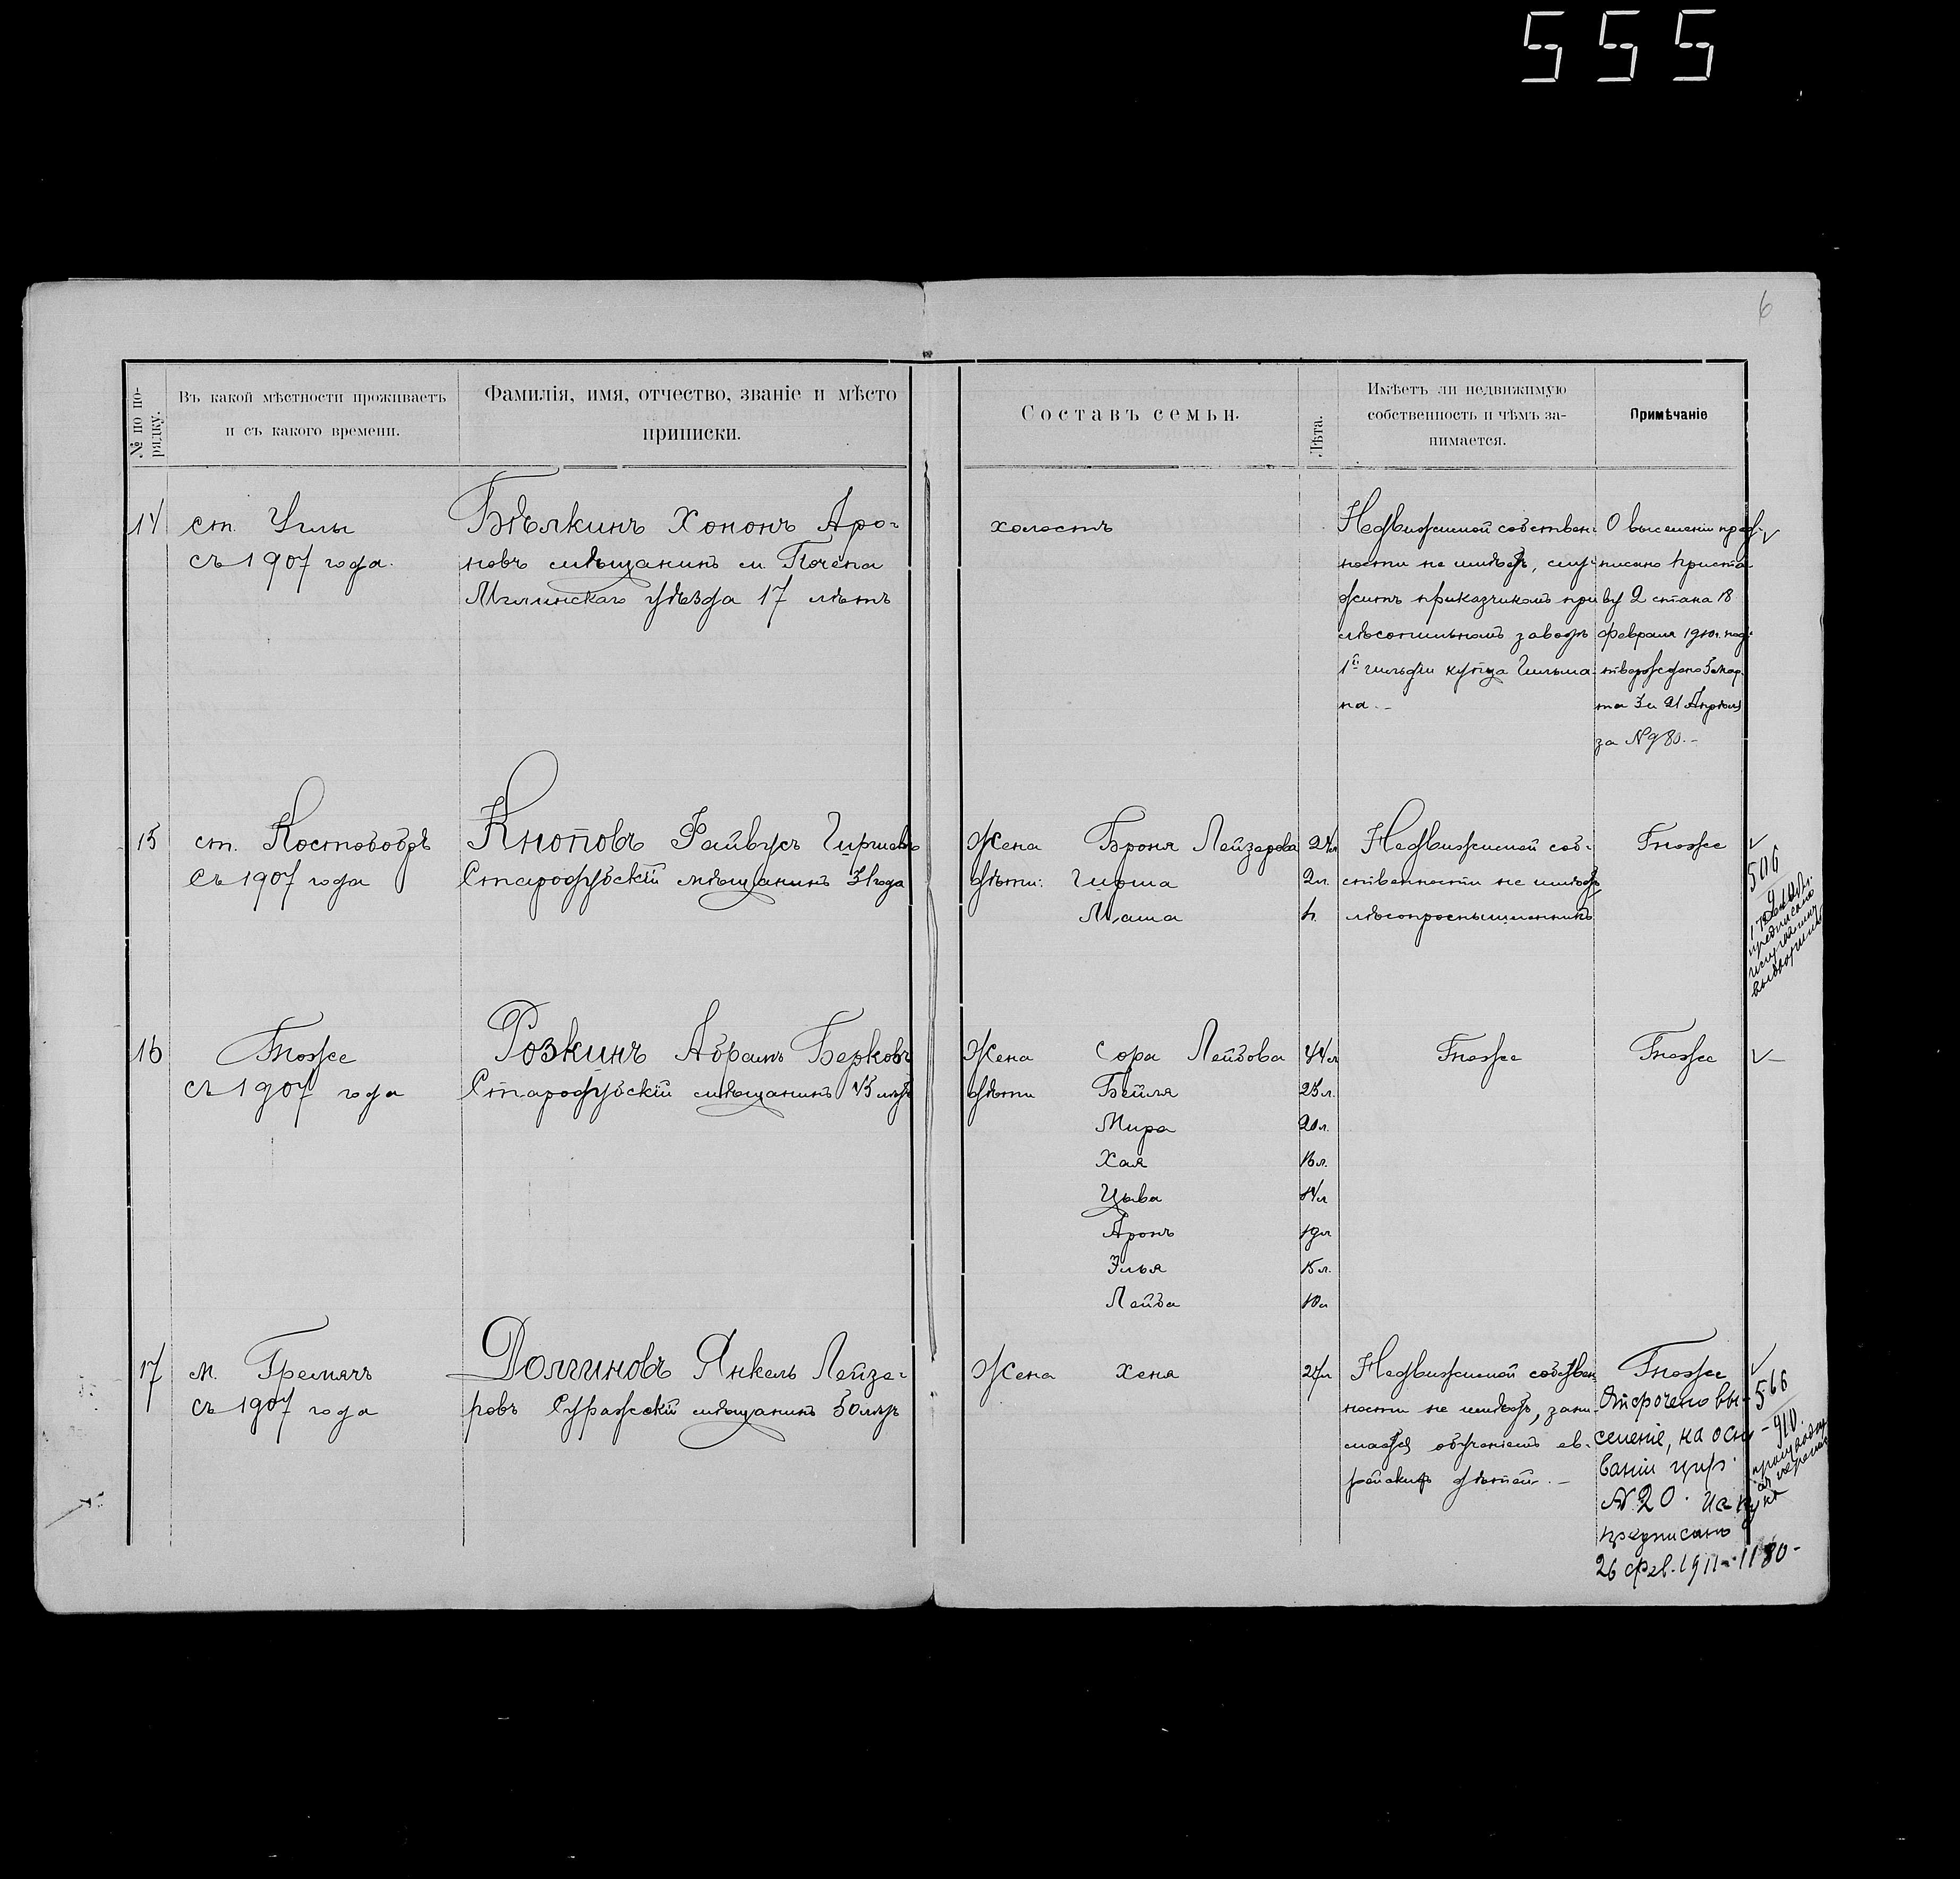 555
6
№ по по-
рядку.
Въ какой мѣстности проживаетъ
и съ какого времени.
Фамилія, имя, отчество, званіе и мѣсто
приписки.
Составъ семьи.
Лѣта.
Имѣетъ ли недвижимую
собственность и чѣмъ за-
нимается.
Примѣчаніе
14
ст. Углы
съ 1907 года.
Бѣлкинъ Хононъ Аро-
новъ мѣщанинъ м. Почепа
Мглинскаго уѣзда 17 лѣтъ
холостъ
Недвижимой собствен-
ности не имѣетъ, слу-
житъ приказчикомъ при
лѣсопильномъ заводѣ
1й гильдіи купца Гильма-
на. –
О выселеніи пред-
писано приста
ву 2 стана 18
февраля 1910г. под-
тверждено 5 мар-
та и 21 Апрѣля
за № 980. –
15
ст. Костобобръ
съ 1907 года
Кноповъ Файвусъ Гиршевъ
Стародубскій мѣщанинъ 31 года
Жена Броня Лейзерова 24л
дѣти: Гирша 2л.
Маша
Недвижимой соб-
ственности не имѣетъ
лѣсопромышленникъ
Тоже
506
предписано
16
Тоже
съ 1907 года
Розкинъ Абрамъ Берковъ
Стародубскій мѣщанинъ 45 лѣтъ
Жена Сора Лейбова 44л
дѣти Бейля 25л.
Мира 20л.
Хая 16л.
Цыва 14л
Аронъ 19л
Элья 15л.
Лейба 10л
Тоже
Тоже
17
м. Гремячъ
съ 1907 года
Долгиновъ Янкель Лейзе-
ровъ Суражскій мѣщанинъ 50 лѣтъ
Жена Хеня 27л
Недвижимой собствен-
ности не имѣетъ, зани-
мается обученіемъ ев-
рейскихъ дѣтей. –
Тоже
Отсрочено вы-
селеніе, на осно
ваніи цир.
№ 20.
предписано
26 фев. 1911 – 1180 –
566
– 910.